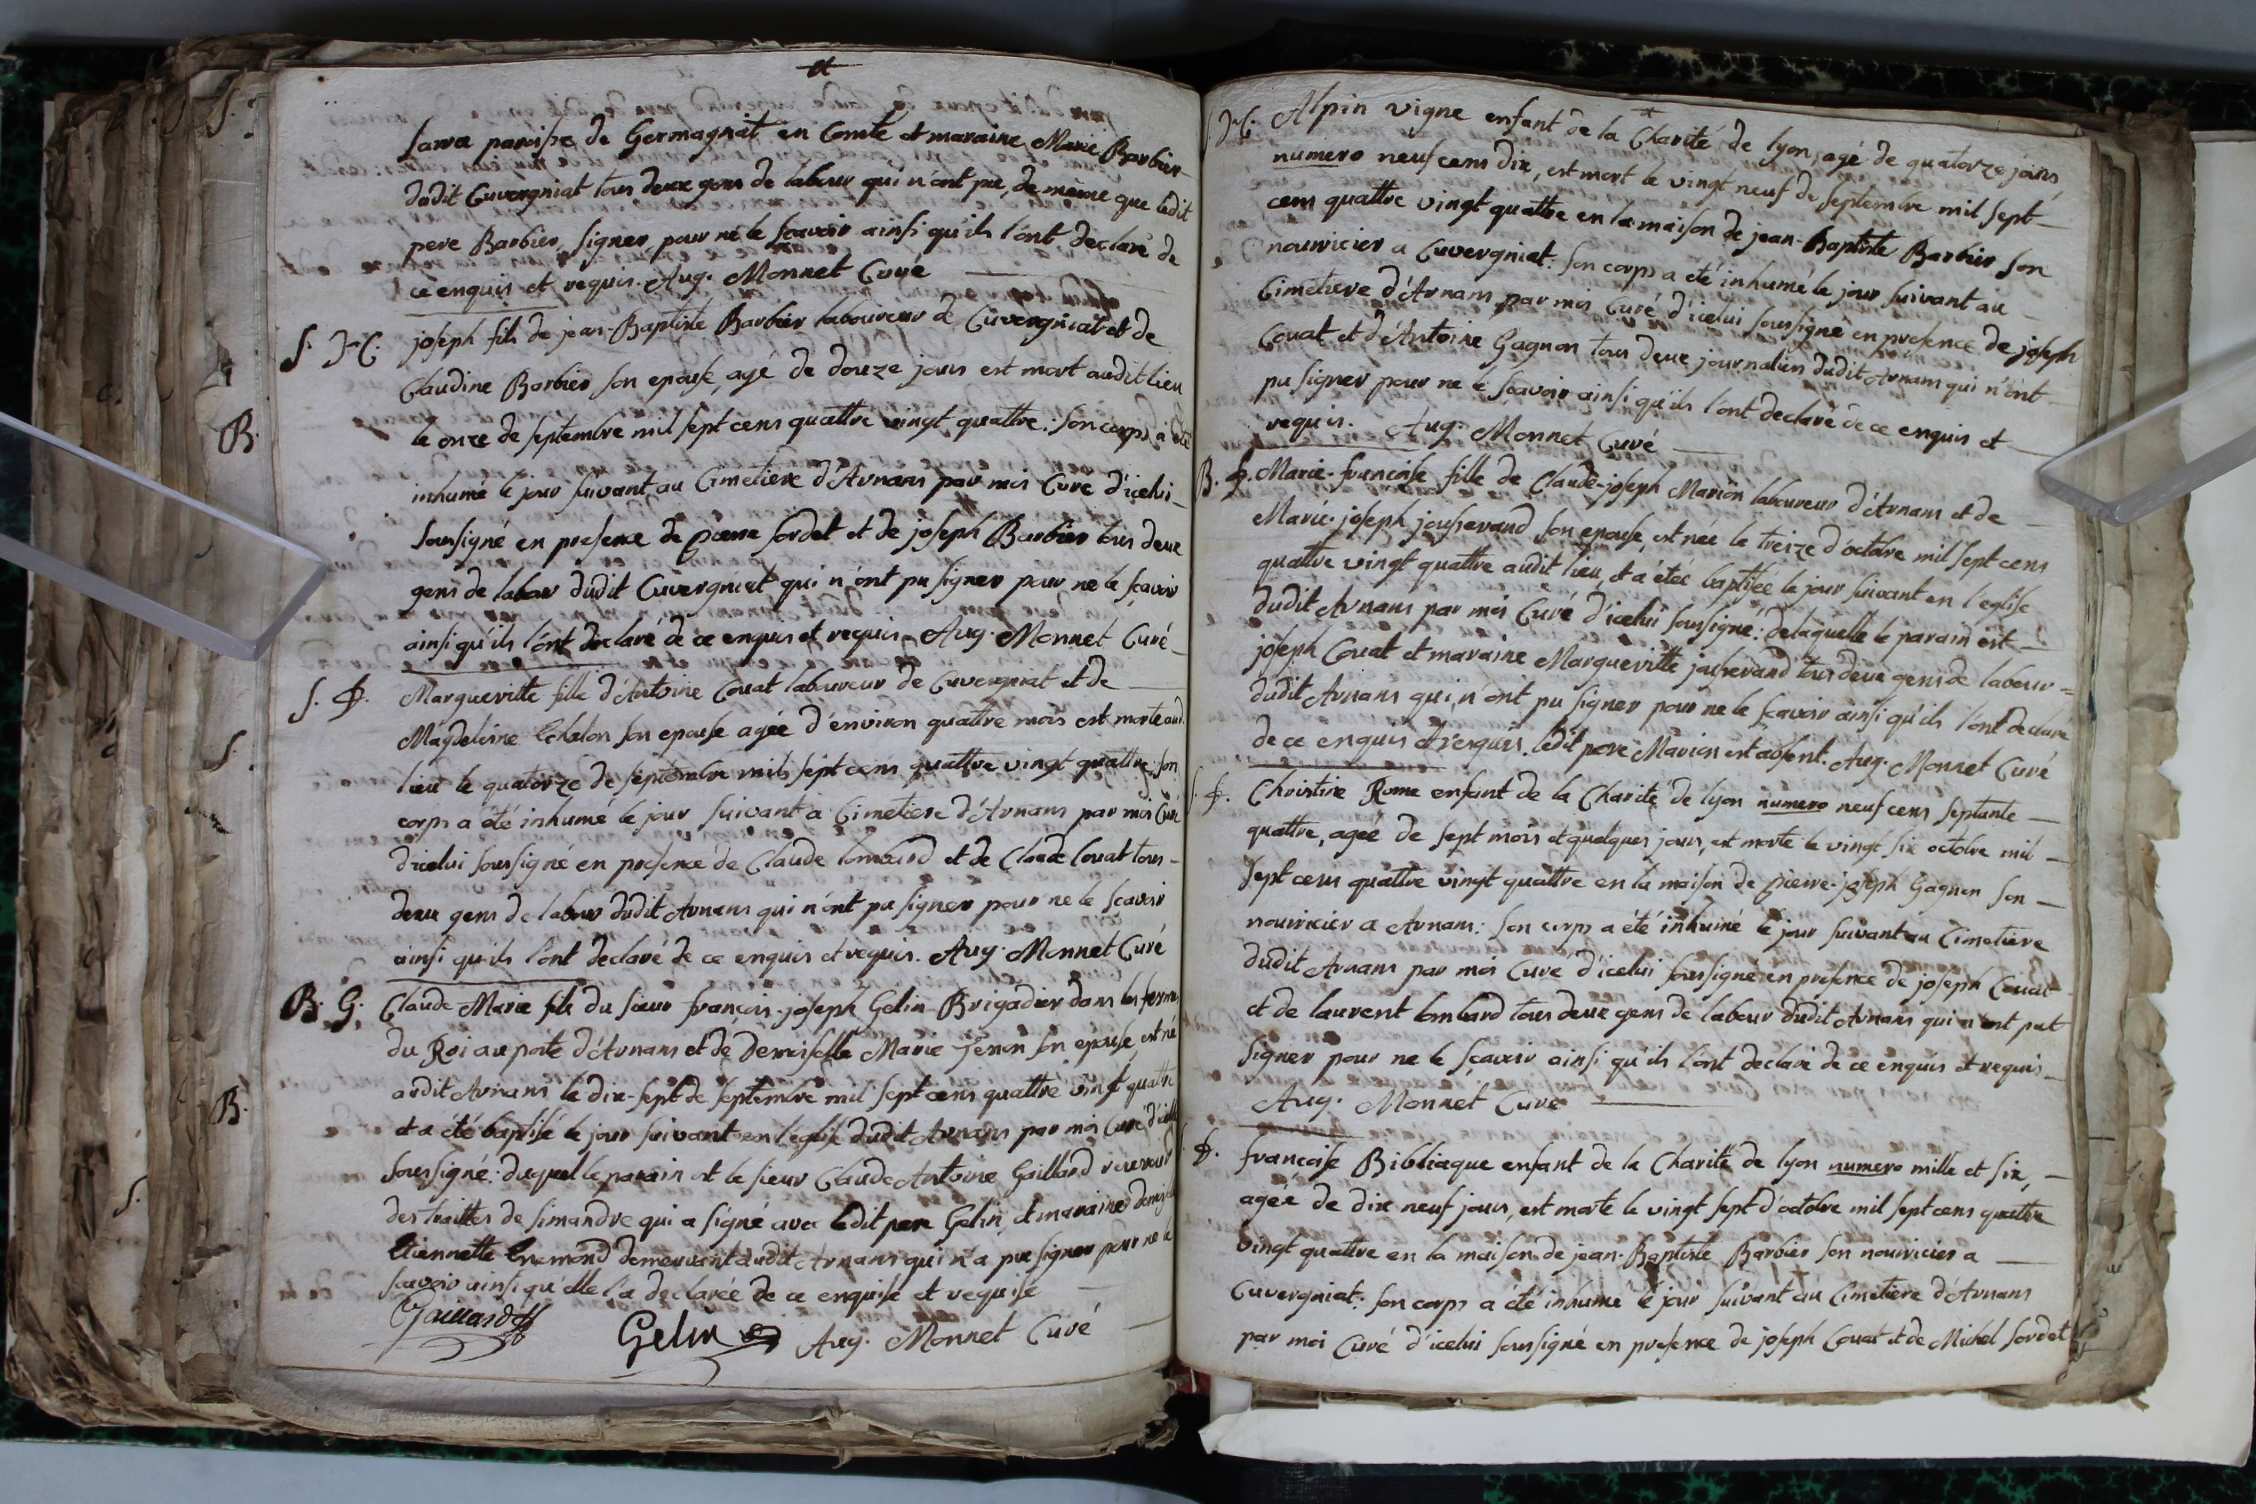 Sarra paroisse de Germagniat en Comté et maraine Marie Barbier
dudit Cuvergniat tous deux gens de labour qui n'ont pu, de même que ledit
pere Barbier, signer pour ne le sçavoir ainsi qu'ils l'ont declaré de
ce enquis et requis. Aug. Monnet Curé
S. joseph fils de jean-Baptiste Barbier laboureur de Cuvergniat et de
Claudine Barbier son epouse, agé de douze jours est mort audit lieu
le onze de septembre mil sept cens quattre vingt quattre: son corps a été
inhumé le jour suivant au Cimetiere d'Arnans par moi Curé d'icelui
soussigné en presence de pierre sordet et de joseph Barbier tous deux
gens de labour dudit Cuvergniat qui n'ont pu signer pour ne le sçavoir
ainsi qu'ils l'ont declaré de ce enquis et requis. Aug. Monnet Curé
S. Margueritte fille d'Antoine Couat laboureur de Cuvergniat et de
Magdeleine Echalon son epouse agée d'environ quattre mois est morte aud.
lieu le quatorze de septembre mil sept cens quattre vingt quattre: son
corps a été inhumé le jour suivant a Cimetiere d'Arnans par moi Curé
d'icelui soussigné en presence de Claude lombard et de Claude Couat tous
deux gens de labour dudit Arnans qui n'ont pu signer pour ne le scavoir
ainsi qu'ils l'ont declaré de ce enquis et requis. Aug. Monnet Curé
B. G. Claude Marie fils du sieur françois-joseph Gelin Brigadier dans les fermes
du Roi au poste d'Arnans et de Demoiselle Marie son epouse, est né
audit Arnans le dix-sept de septembre mil sept cens quattre vingt quattre
et a été baptisé le jour suivant en l'eglise dudit Arnans par moi Curé d'icelle
soussigné: duquel le parain est le sieur Claude Antoine Gaillard receveur
des traittes de simandre qui a signé avec ledit pere Gelin, et maraine
Etiennette demeurant audit Arnans qui n'a pu signer pour ne le
scavoir ainsi qu'elle l'a declarée de ce enquise et requise
Gaillard Gelin Aug. Monnet Curé
Alpin vigne enfant de la Charité de lyon, agé de quatorze jours
numero neuf cens dix, est mort le vingt neuf de septembre mil sept
cens quattre vingt quattre en la maison de jean-Baptiste Barbier son
nourricier a Cuvergniat: son corps a été inhumé le jour suivant au
Cimetiere d'Arnans par moi Curé d'icelui soussigné en presence de joseph
Couat et d'Antoine Gagnon tous deux journaliers dudit Arnans qui n'ont
pu signer pour ne le sçavoir ainsi qu'ils l'ont declaré de ce enquis et
requis. Aug. Monnet Curé
B. Marie-francoise fille de Claude-joseph Marion laboureur d'Arnans et de
Marie-joseph son epouse, est née le treize d'octobre mil sept cens
quattre vingt quattre audit lieu, et a étéé baptisée le jour suivant en l'eglise
dudit Arnans par moi Curé d'icelui soussigné: de laquelle le parain est
joseph Couat et maraine Margueritte tous deux gens de labour
dudit Arnans qui n'ont pu signer pour ne le scavoir ainsi qu'ils l'ont declaré
de ce enquis et requis. ledit pere Marion est absent. Aug. Monnet Curé
Christine Rome enfant de la Charité de lyon numero neuf cens septante
quattre, ageé de sept mois et quelques jours, est morte le vingt six octobre mil
sept cens quattre vingt quattre en la maison de pierre-joseph Gagnon son
nourricier a Arnans: son corps a été inhumé le jour suivant au Cimetiere
dudit Arnans par moi Curé d'icelui soussigné en presence de joseph Couat
et de laurent lombard tous deux gens de labour dudit Arnans qui n'ont put
signer pour ne le sçavoir ainsi qu'ils l'ont declaré de ce enquis et requis
Aug. Monnet Curé
francoise Bibliaque enfant de la Charité de lyon numero mille et six,
agee de dix neuf jours, est morte le vingt sept d'octobre mil sept cens quattre
vingt quattre en la maison de jean-Baptiste Barbier son nourricier a
Cuvergniat: son corps a été inhumé le jour suivant au Cimetiere d'Arnans
par moi Curé d'icelui soussigné en presence de joseph Couat et de Michel sordet